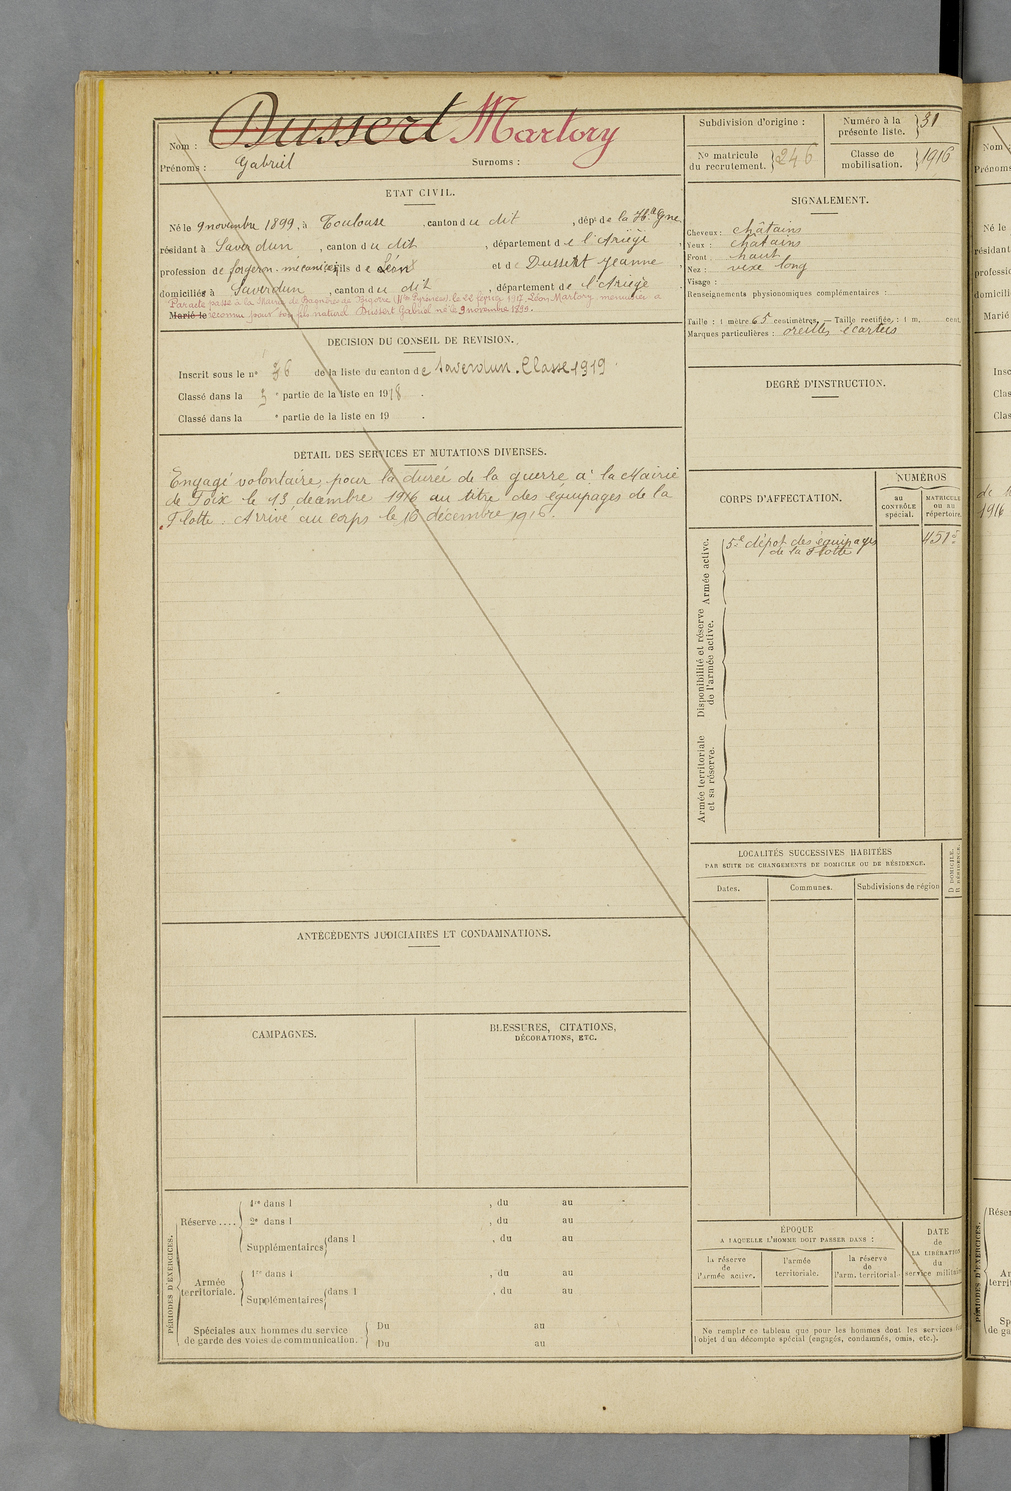 Nom : Dussert Martory
Prénoms : Gabriel Surnoms :
ETAT CIVIL.
Né le 9 novembre 1899, à Toulouse, canton du dit, dépt de la Hte Gne,
résidant à Saverdun, canton du dit, département de l'Ariège,
profession de forgeron-mécanicien, fils de Léon et de Dussert Jeanne,
domiciliés à Saverdun, canton du dit, département de l'Ariège
Par acte passé à la Mairie de Bagnères de Bigorre (Htes Pyrénées) le 22 février 1917, Léon Martory menuisier a
Marié le reconnu pour son fils naturel Dussert Gabriel né le 9 novembre 1899.
DÉCISION DU CONSEIL DE REVISION.
Inscrit sous le n° 36 de la liste du canton de Saverdun. Classe 1919
Classé dans la 3 e partie de la liste en 1918.
Classé dans la e partie de la liste en 19 .
DÉTAIL DES SERVICES ET MUTATIONS DIVERSES.
Engagé volontaire pour la durée de la guerre à la Mairie
de Foix le 13 décembre 1916 au titre des équipages de la
Flotte. Arrivé au corps le 16 décembre 1916.
ANTÉCÉDENTS JUDICIAIRES ET CONDAMNATIONS.
CAMPAGNES.
BLESSURES, CITATIONS,
DÉCORATIONS, ETC.
PÉRIODES D'EXERCICES.
Réserve ....
1re dans l , du au
2e dans l , du au
Supplémentaires dans l , du au
Armée
territoriale.
1re dans l , du au
Supplémentaires dans l , du au
Spéciales aux hommes du service
de garde des voies de communication.
Du au
Du au
Subdivision d'origine :
Numéro à la
présente liste. 31
N° matricule
du recrutement. 246
Classe de
mobilisation. 1916
SIGNALEMENT.
Cheveux : châtains
Yeux : châtains
Front : haut
Nez : vexe long
Visage :
Renseignements physionomiques complémentaires :
Taille : 1 mètre 65 centimètres. — Taille rectifiée : 1 m. cent.
Marques particulières : oreilles écartées
DEGRÉ D'INSTRUCTION.
CORPS D'AFFECTATION.
NUMÉROS
au
CONTRÔLE
spécial.
MATRICULE
ou au
répertoire.
Armée active.
5e dépôt des équipages
de la Flotte
Disponibilité et réserve
de l'armée active.
Armée territoriale
et sa réserve.
LOCALITÉS SUCCESSIVES HABITÉES
PAR SUITE DE CHANGEMENTS DE DOMICILE OU DE RÉSIDENCE.
D DOMICILE.
R RÉSIDENCE.
Dates.
Communes.
Subdivisions de région
ÉPOQUE
A LAQUELLE L'HOMME DOIT PASSER DANS :
DATE
de
LA LIBÉRATION
du
service militaire
la réserve
de
l'armée active.
l'armée
territoriale.
la réserve
de
l'arm. territorial
Ne remplir ce tableau que pour les hommes dont les services
l'objet d'un décompte spécial (engagés, condamnés, omis, etc.).
Nom
Prénoms
Né le
résidant
professi
domicili
Marié
Insc
Clas
Clas
1916
Réser
Ar
territ
PÉRIODES D'EXERCICES.
Sp
de ga